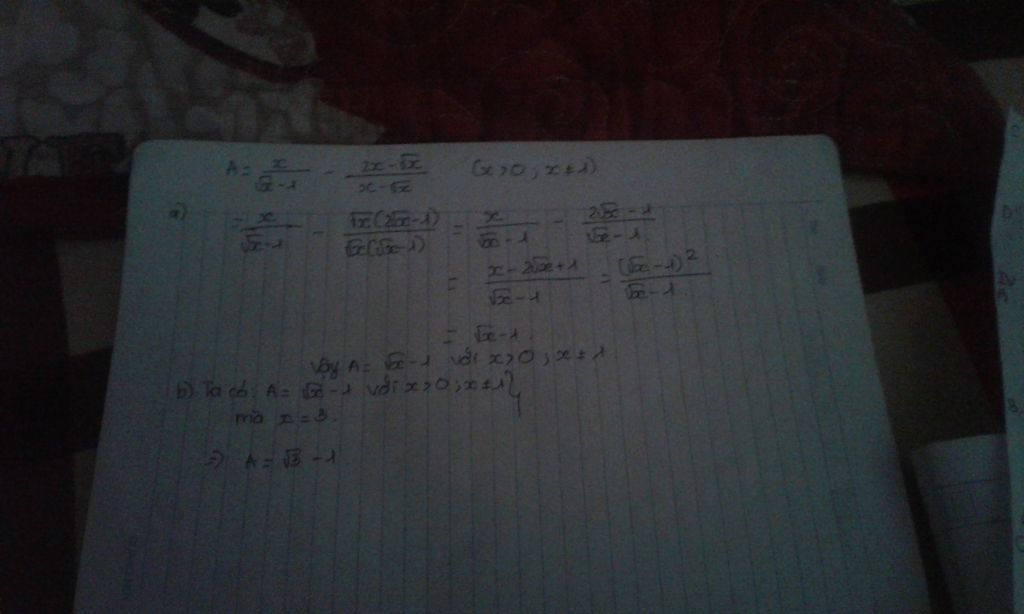 A = x/(√x-1) - (2x-√x)/(x-√x) (x>0; x≠1)
a) = x/(√x-1) - √x(2√x-1)/(√x(√x-1)) = x/(√x-1) - (2√x-1)/(√x-1)
= (x-2√x+1)/(√x-1) = (√x-1)²/(√x-1)
= √x-1
Vậy A = √x-1 với x>0; x≠1
b) Ta có: A = √x-1 với x>0; x≠1}
mà x=3.
=) A = √3 -1